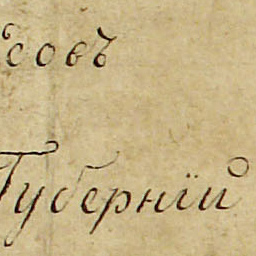 совъ
Губерніи